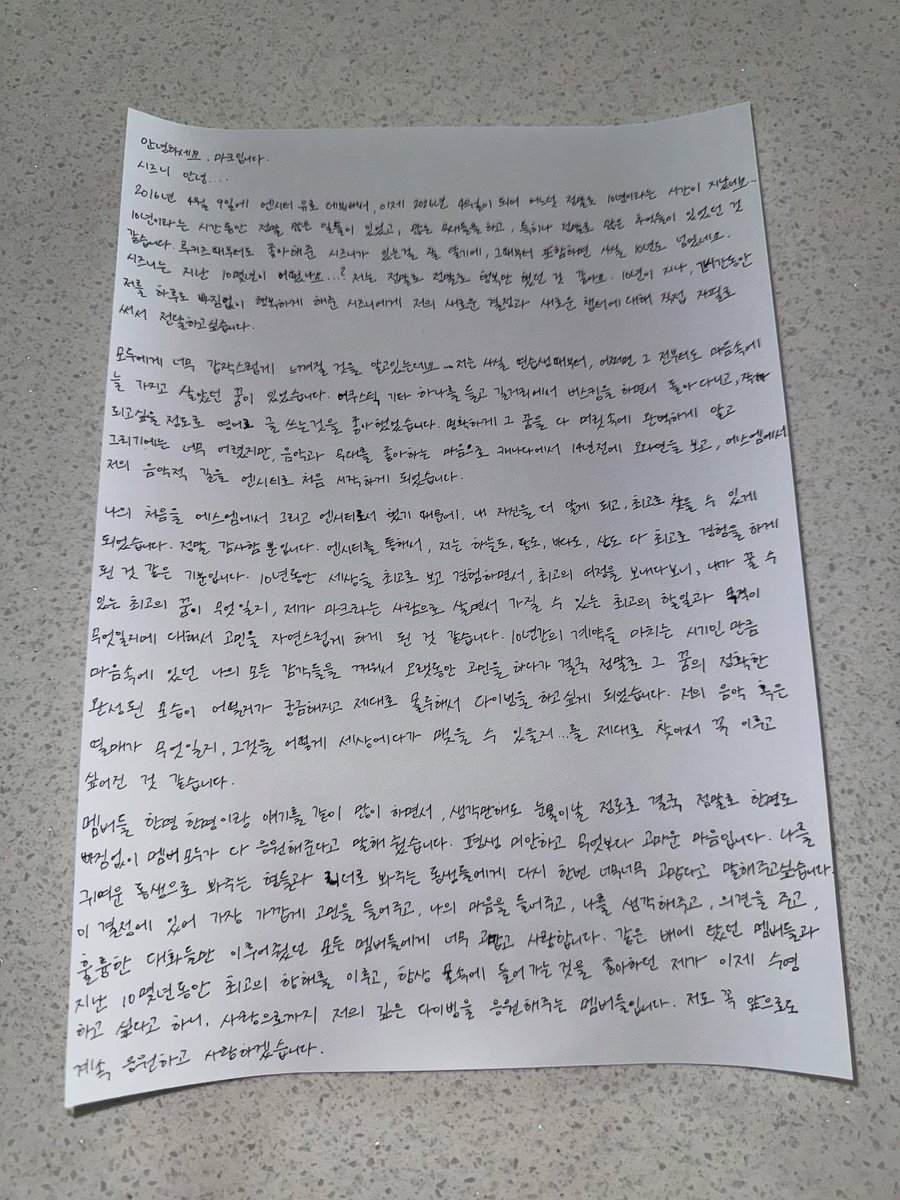 안녕하세요, 마크입니다.
시즈니 안녕....
2016년 4월 9일에 엔시티 유로 데뷔해서, 이제 2026년 4월이 되어 어느덧 정말로 10년이라는 시간이 지났네요...
10년이라는 시간동안 정말 많은 일들이 있었고, 많은 무대들을 하고, 특히나 정말로 많은 추억들이 있었던 것
같습니다. 루키즈 때부터도 좋아해준 시즈니가 있는걸 잘 알기에, 그때부터 포함하면 사실 10년도 넘었네요.
시즈니는 지난 10몇년이 어땠나요...? 저는 정말로 정말로 행복만 했던 것 같아요. 10년이 지나, 긴시간동안
저를 하루도 빠짐없이 행복하게 해준 시즈니에게 저의 새로운 결정과 새로운 챕터에 대해 직접 자필로
써서 전달하고싶습니다.
모두에게 너무 갑작스럽게 느껴질 것을 알고있는데요... 저는 사실 연습생때부터, 어쩌면 그 전부터도 마음속에
늘 가지고 살았던 꿈이 있었습니다. 어쿠스틱 기타 하나를 들고 길거리에서 버스킹을 하면서 돌아다니고, 작가가
되고싶을 정도로 영어로 글 쓰는것을 좋아했었습니다. 명확하게 그 꿈을 다 머릿속에 완벽하게 알고
그리기에는 너무 어렸지만, 음악과 무대를 좋아하는 마음으로 캐나다에서 14년전에 오디션을 보고, 에스엠에서
저의 음악적 길을 엔시티로 처음 시작하게 되었습니다.
나의 처음을 에스엠에서 그리고 엔시티로서 했기 때문에, 내 자신을 더 알게 되고, 최고로 찾을 수 있게
되었습니다. 정말 감사할 뿐입니다. 엔시티를 통해서, 저는 하늘도, 땅도, 바다도, 산도 다 최고로 경험을 하게
된 것 같은 기분입니다. 10년동안 세상을 최고로 보고 경험하면서, 최고의 여정을 보내다보니, 내가 꿀 수
있는 최고의 꿈이 무엇일지, 제가 마크라는 사람으로 살면서 가질 수 있는 최고의 할일과 목적이
무엇일지에 대해서 고민을 자연스럽게 하게 된 것 같습니다. 10년간의 계약을 마치는 시기인 만큼
마음속에 있던 나의 모든 감각들을 깨워서 오랫동안 고민을 하다가 결국 정말로 그 꿈의 정확한
완성된 모습이 어떨지가 궁금해지고 제대로 몰두해서 다이빙을 하고싶게 되었습니다. 저의 음악 혹은
열매가 무엇일지, 그것을 어떻게 세상에다가 맺을 수 있을지...를 제대로 찾아서 꼭 이루고
싶어진 것 같습니다.
멤버들 한명 한명이랑 얘기를 같이 많이 하면서, 생각만해도 눈물이날 정도로 결국 정말로 한명도
빠짐없이 멤버 모두가 다 응원해준다고 말해 줬습니다. 평생 미안하고 무엇보다 고마운 마음입니다. 나를
귀여운 동생으로 봐주는 형들과 리더로 봐주는 동생들에게 다시 한번 너무너무 고맙다고 말해주고싶습니다.
이 결정에 있어 가장 가깝게 고민을 들어주고, 나의 마음을 들어주고, 나를 생각해주고, 의견을 주고,
훌륭한 대화들만 이루어줬던 모든 멤버들에게 너무 고맙고 사랑합니다. 같은 배에 탔던 멤버들과
지난 10몇년동안 최고의 항해를 이루고, 항상 물속에 들어가는 것을 좋아하던 제가 이제 수영
하고 싶다고 하니, 사랑으로까지 저의 깊은 다이빙을 응원해주는 멤버들입니다. 저도 꼭 앞으로도
계속 응원하고 사랑하겠습니다.